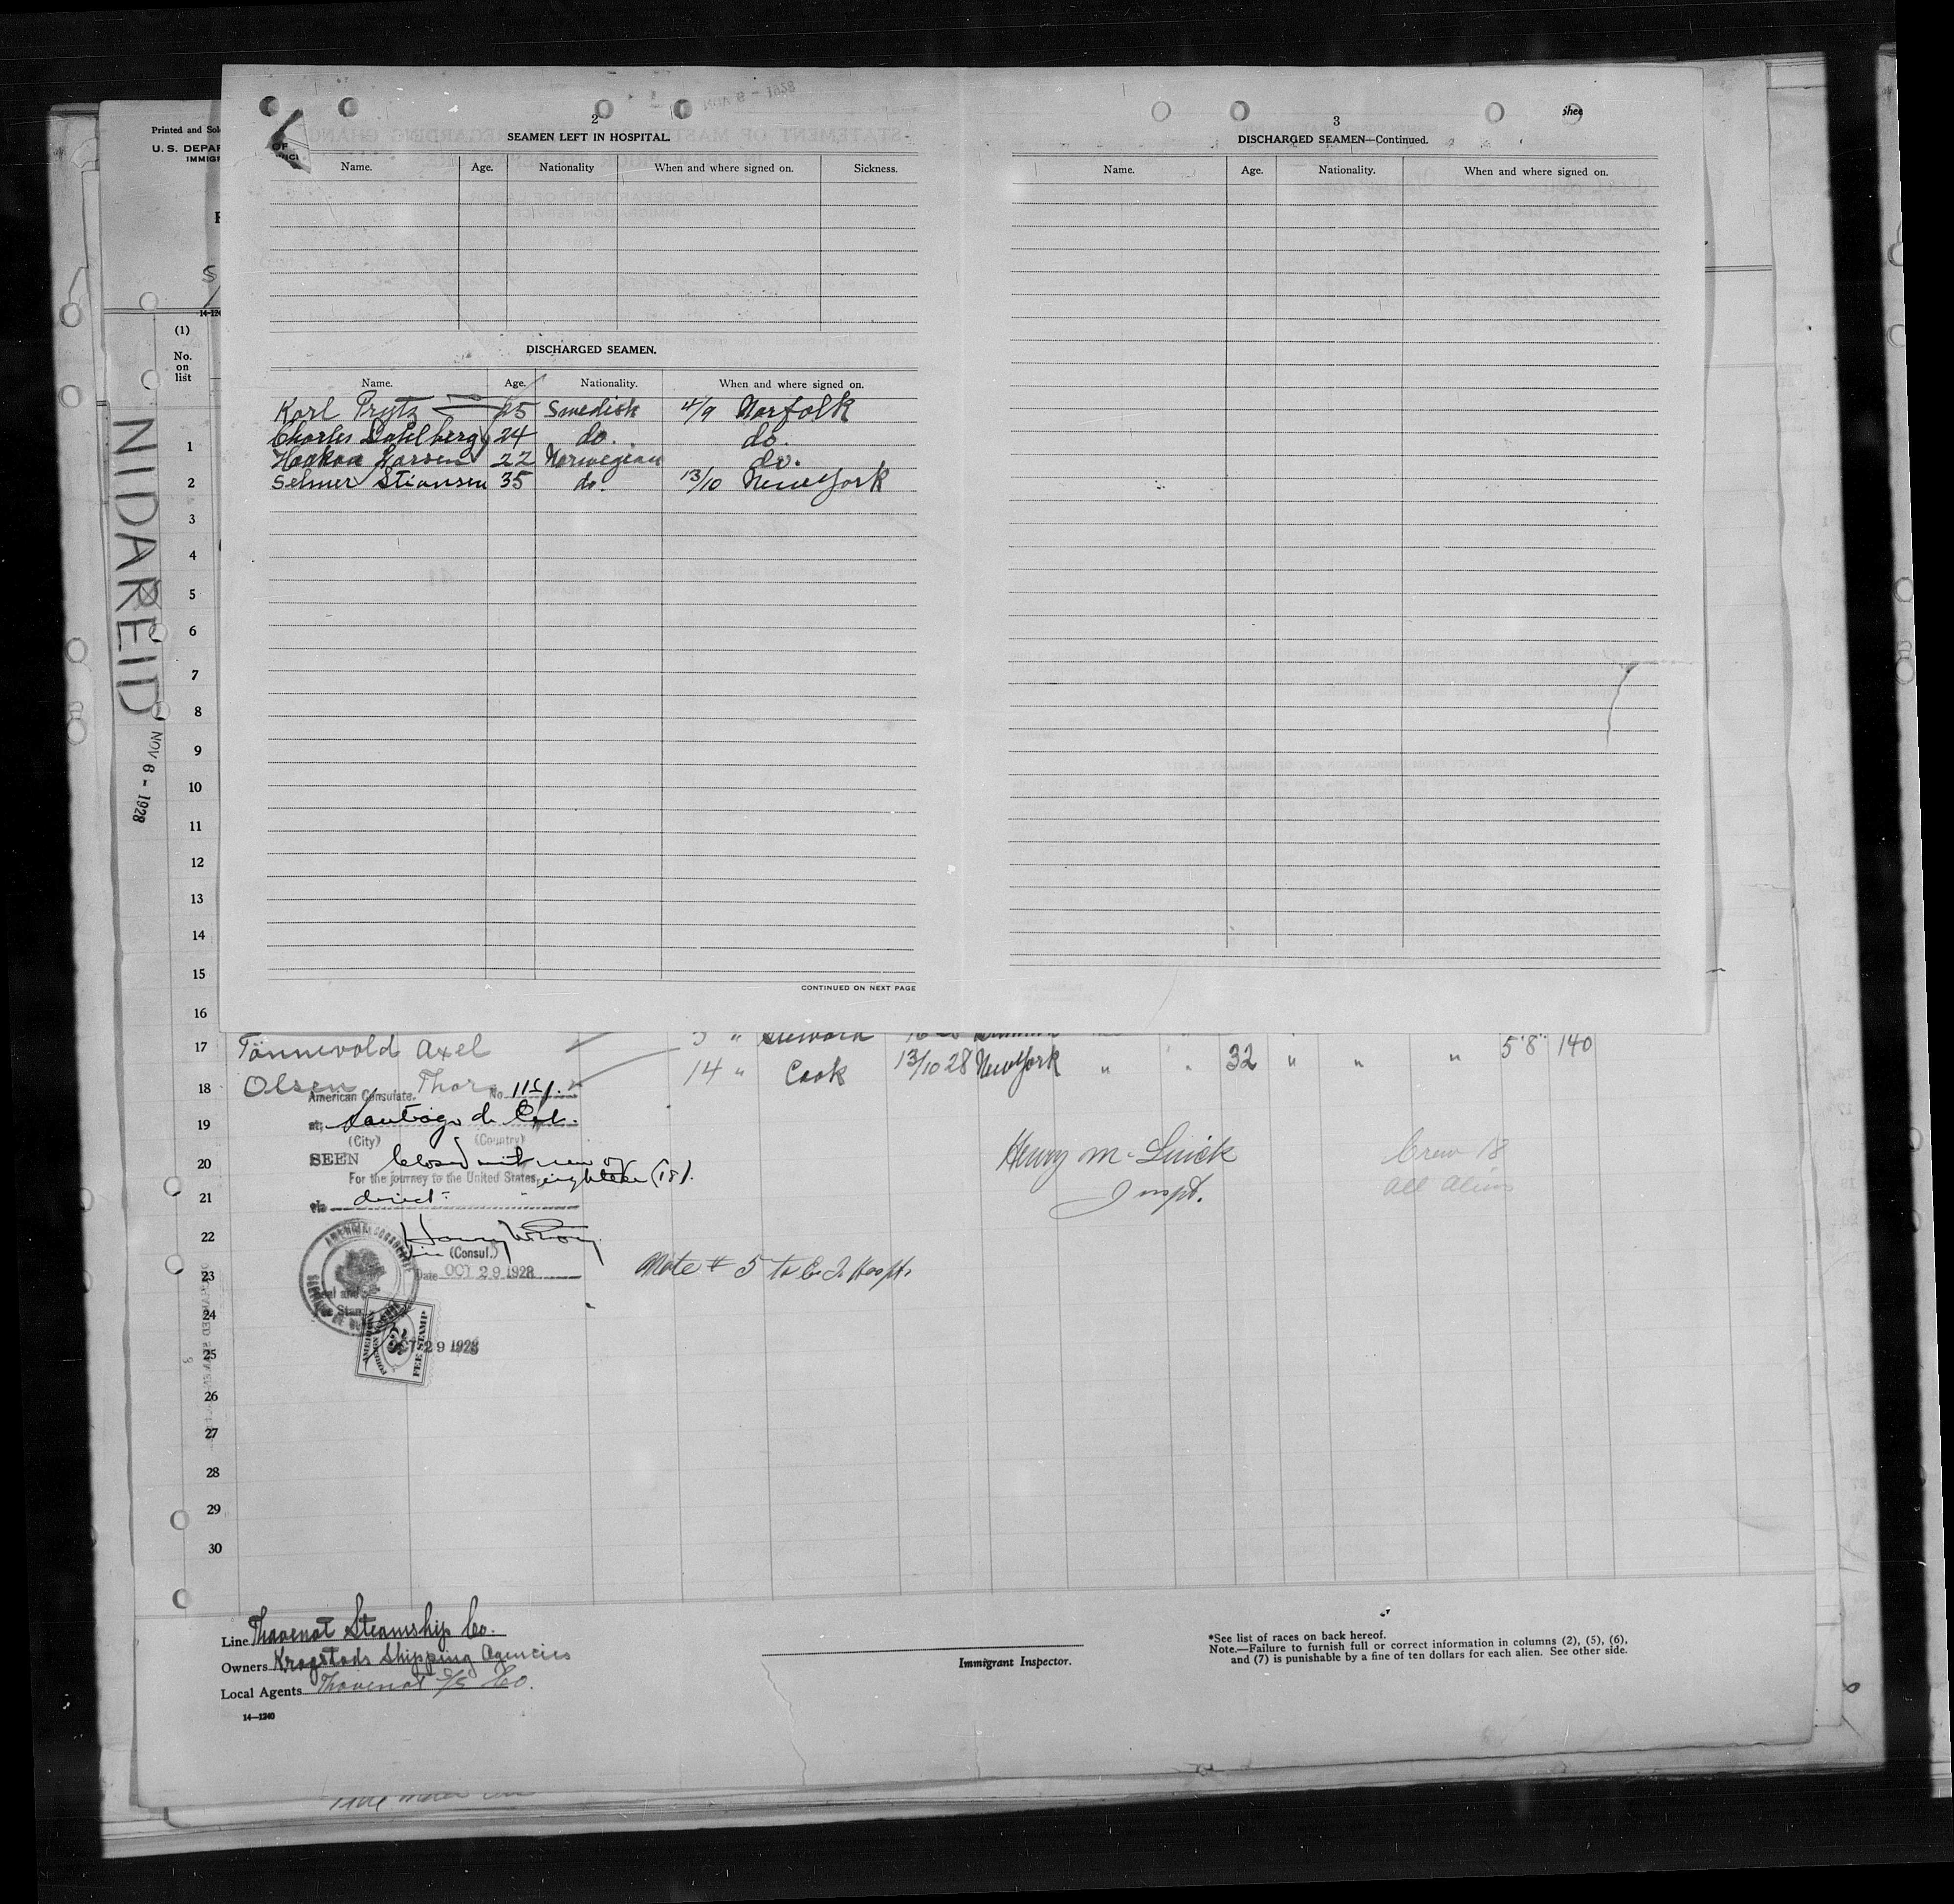 Printed and Sol
U.S. DEPAR
IMMIGR
14-124
(1)
No.
on
list
NIDAREID
NOV 6 - 1928
2
SEAMEN LEFT IN HOSPITAL.
Name. Age. Nationality When and where signed on. Sickness.
DISCHARGED SEAMEN.
Name. Age. Nationality. When and where signed on.
Karl Prytz 25 Swedish 4/9 Norfolk
Charles Dahlberg 24 do. do.
Haakon Larsen 22 Norwegian do.
Selmer Stiansen 35 do. 13/10 New York
CONTINUED ON NEXT PAGE
3
DISCHARGED SEAMEN—Continued.
Name. Age. Nationality. When and where signed on.
Shee
1
2
3
4
5
6
7
8
9
10
11
12
13
14
15
16
17 Tönnevold Axel 3 " Steward
18 Olsen Thor 14 " Cook 13/10 28 New York " " 32 " " " 5'8" 140
19
20
21
22
23
24
25
26
27
28
29
30
American Consulate. No.
at, Santiago de
(City) (Country)
SEEN
For the journey to the United States, eighteen (18).
via direct
(Consul.)
Date OCT 29 1928
OCT 29 1928
FEE STAMP
Henry M.
Inspt.
Crew 18
all aliens
Note # 5 to
Line Thavenot Steamship Co.
Owners Krogstads Shipping Agencies
Local Agents Thavenot S/S Co.
14—1240
Immigrant Inspector.
*See list of races on back hereof.
Note.—Failure to furnish full or correct information in columns (2), (5), (6),
and (7) is punishable by a fine of ten dollars for each alien. See other side.